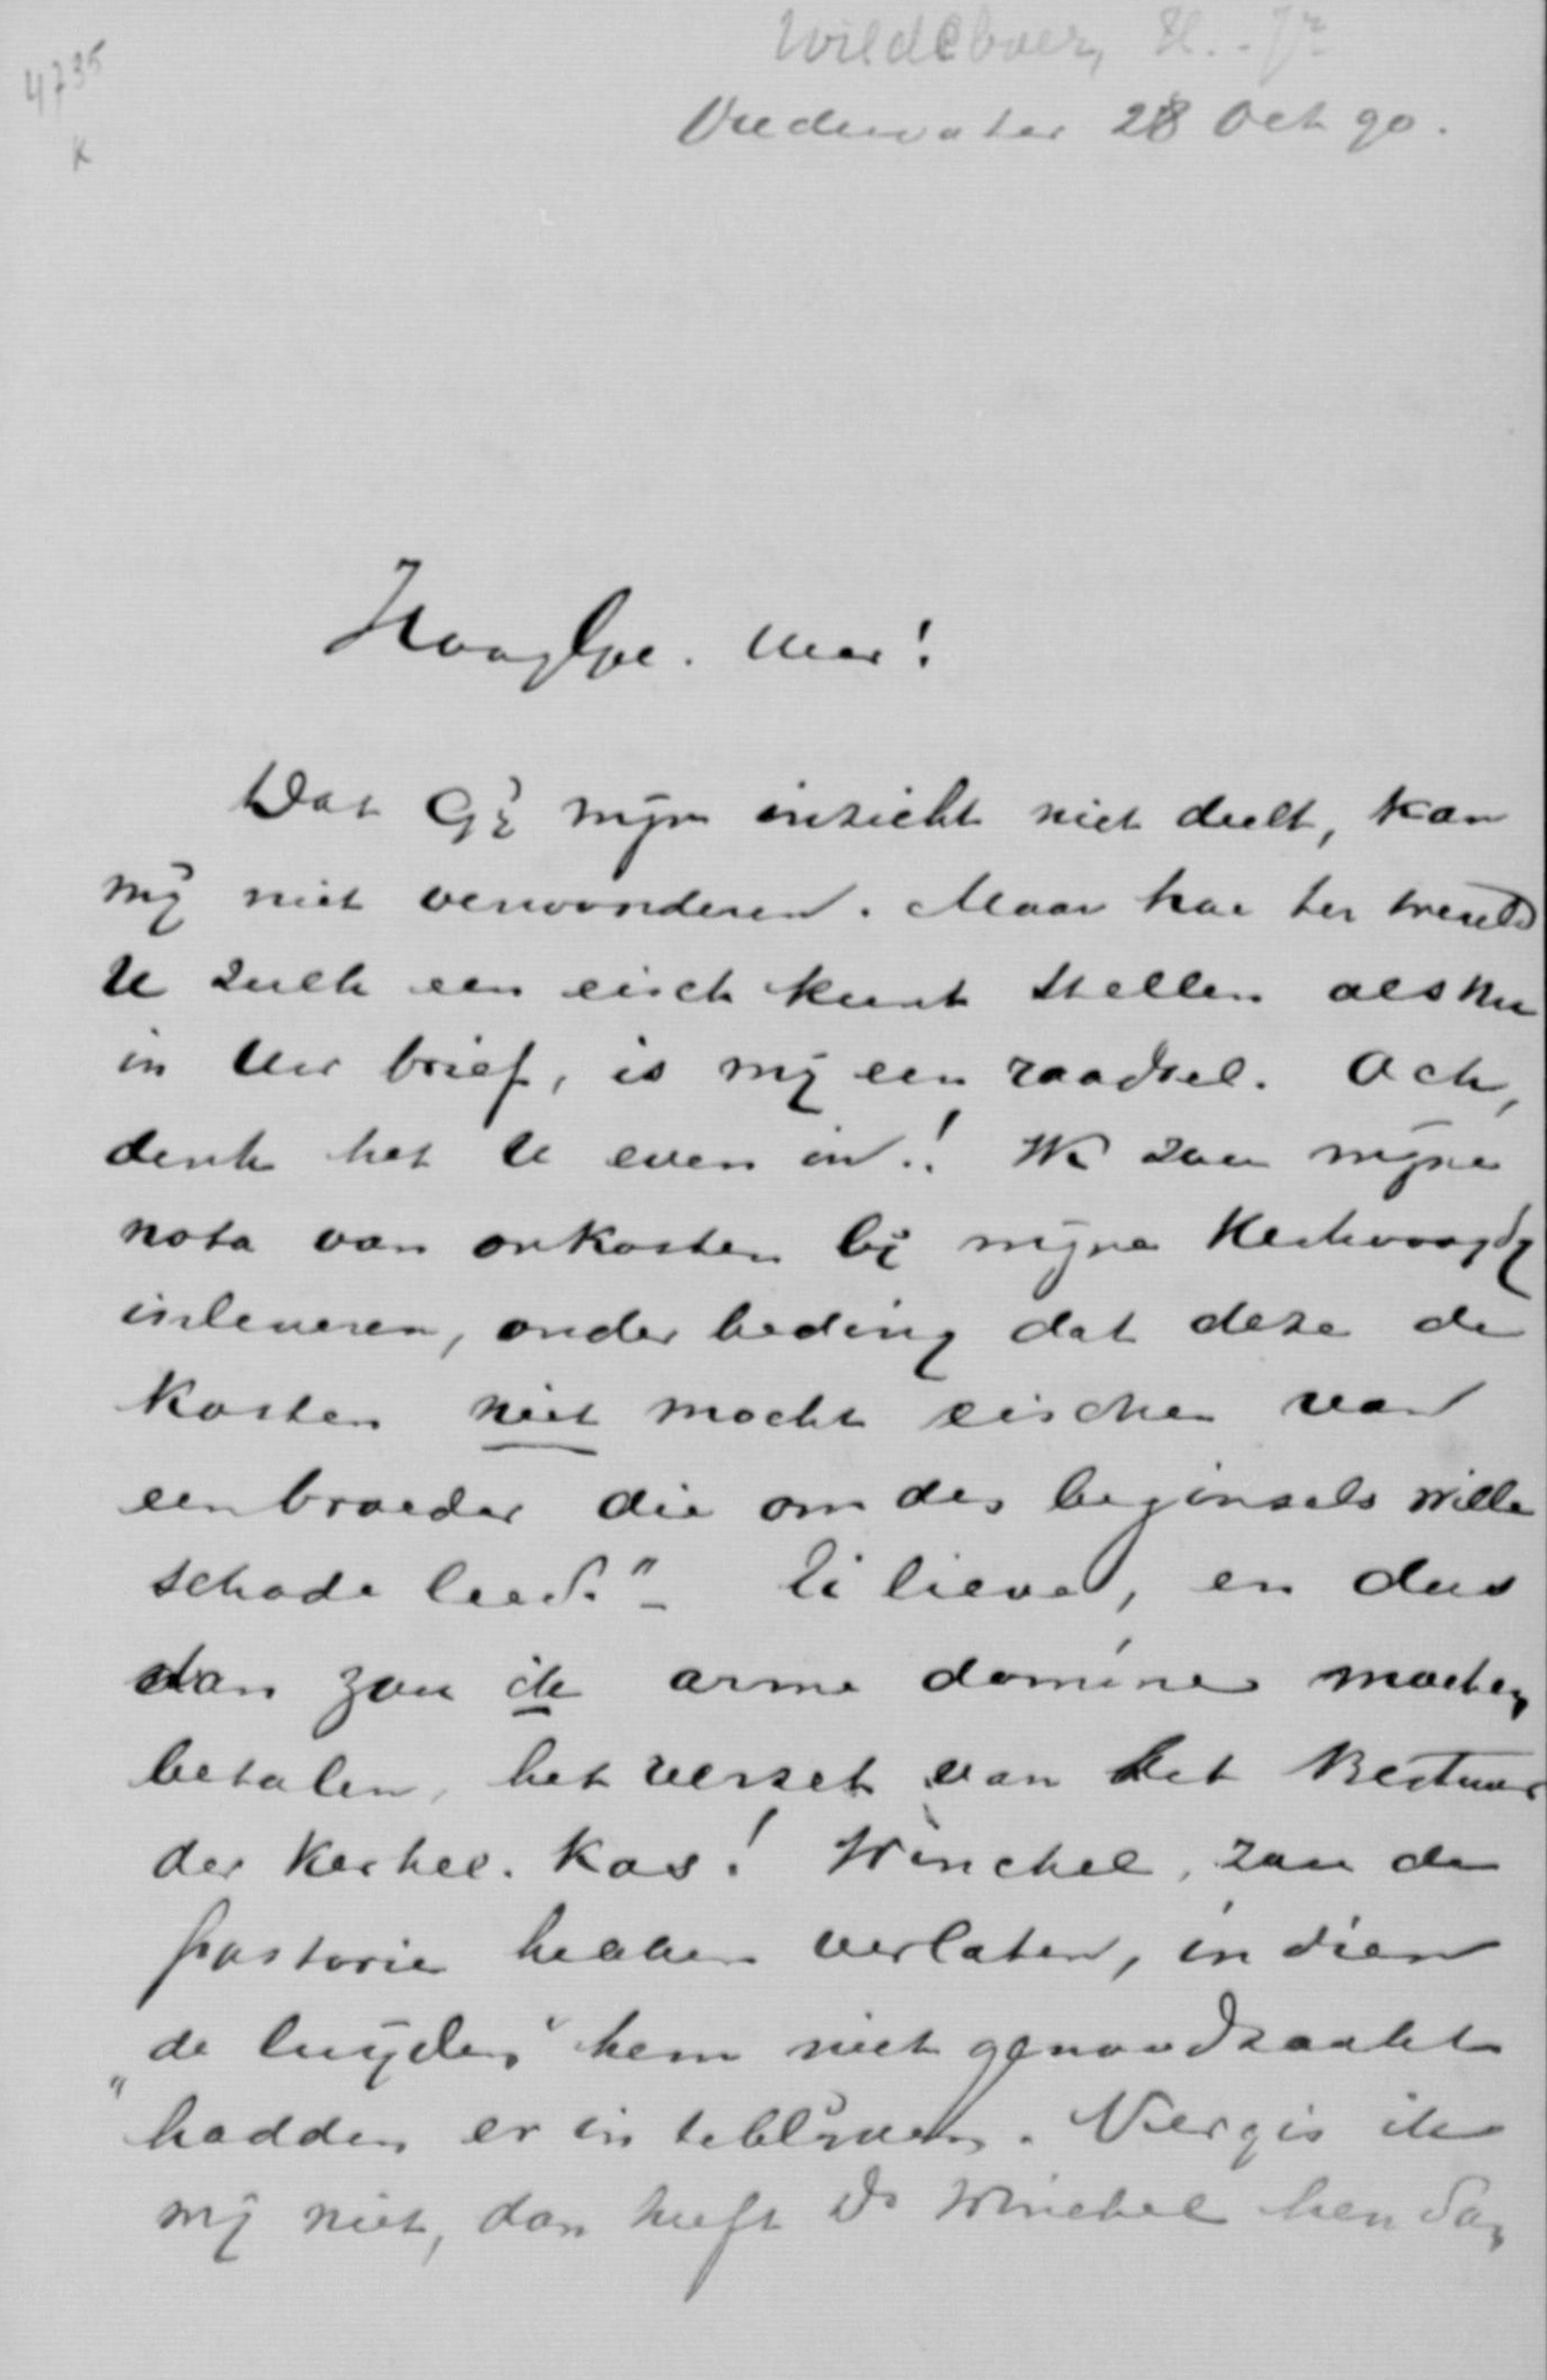 4735
K
Wildeboer, H. Jr
Oudewater 28 Oct 90.
Hoogtgel. Heer!
Dat Gij mijn inzicht niet deelt, kan
mij niet verwonderen. Maar hoe ter wereld
U zulk een eisch kunt stellen als nu
in Uw brief, is mij een raadsel. Och,
denk het U even in! Ik zou mijne
nota van onkosten bij mijne Kerkvoogdij
inleveren, onder beding dat deze de
kosten niet mocht eischen van
een broeder die om des beginsels wille
schade leed." - Ei lieve, en dus
dan zou ik arme dominé moeten
betalen, het verzet van het Bestuur
der Kerkel. Kas! Winckel, zou de
pastorie hebben verlaten, indien
de luyden" hem niet genoodzaakt
"hadden er in te blijven. Vergis ik
mij niet, dan heeft Ds Winckel